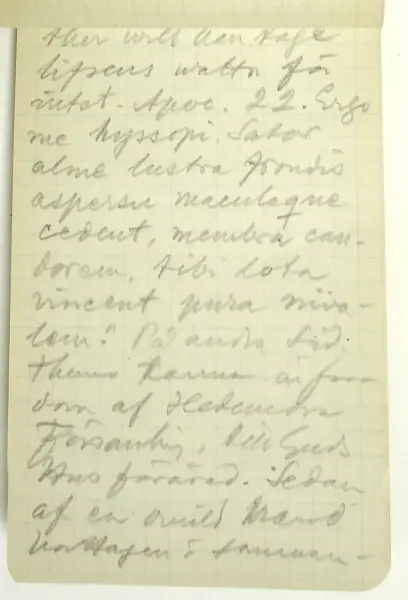 ther will han tage
lifsens watn för
intet. Apoc. 22. Ergo
me hyssopi Sator
alme lustra frondis
aspersu maculaque
cedent, membra can-
dorem, tibi lota
vincent pura niva-
lem." På andra Sid.
thenna Kanna är for
dom af Hedemora
Församling, till Guds
Hus förärad. Sedan
af en omild Hand
borttagen i